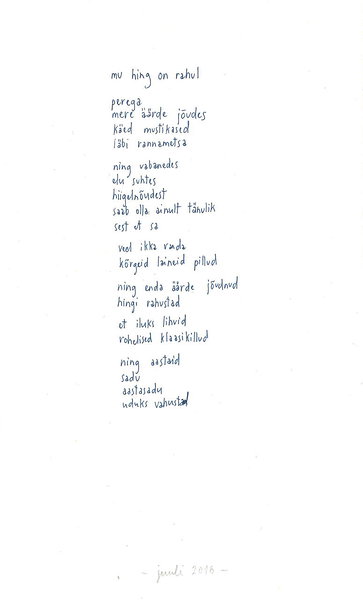 mu hing on rahul
perega
mere äärde jõudes
käed mustikased
läbi rannametsa
ning vabanedes
elu suhtes
hiigelnõudest
saab olla ainult tänulik
sest et sa
veel ikka randa
kõrgeid laineid pillud
ning enda äärde jõudnud
hingi rahustad
et iluks lihvid
rohelised klaasikillud
ning aastaid
sadu
aastasadu
uduks vahustad
- juuli 2018 -